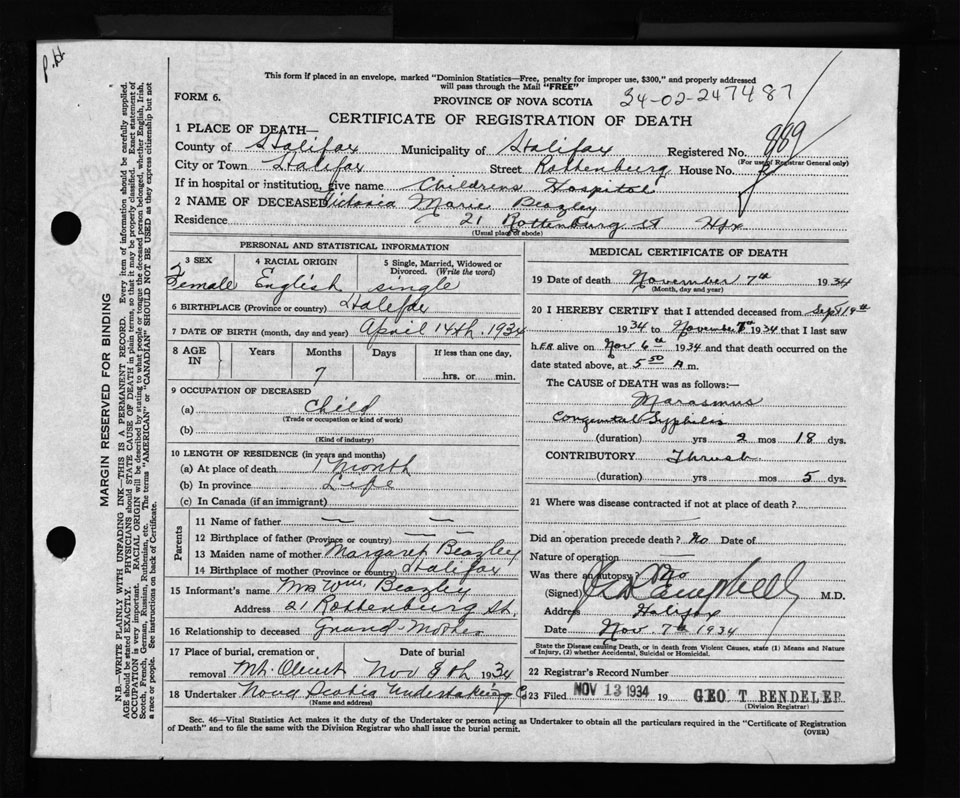 P.H.
This form if placed in an envelope, marked "Dominion Statistics—Free, penalty for improper use, $300," and properly addressed
will pass through the Mail "FREE"
FORM 6.
PROVINCE OF NOVA SCOTIA
34-02-247487
CERTIFICATE OF REGISTRATION OF DEATH
1 PLACE OF DEATH—
County of Halifax Municipality of Halifax Registered No. 889
(For use of Registrar General only)
City or Town Halifax Street Rottenburg House No.
If in hospital or institution, give name Childrens Hospital
2 NAME OF DECEASED Victoria Marie Beazley
Residence 21 Rottenburg St Hfx
(Usual place of abode)
PERSONAL AND STATISTICAL INFORMATION
3 SEX 4 RACIAL ORIGIN 5 Single, Married, Widowed or Divorced. (Write the word)
Female English single
6 BIRTHPLACE (Province or country) Halifax
7 DATE OF BIRTH (month, day and year) April 14th. 1934
8 AGE IN Years Months Days If less than one day,
7 hrs. or min.
9 OCCUPATION OF DECEASED
(a) Child
(Trade or occupation or kind of work)
(b)
(Kind of industry)
10 LENGTH OF RESIDENCE (in years and months)
(a) At place of death 1 month
(b) In province Life
(c) In Canada (if an immigrant)
Parents
11 Name of father — —
12 Birthplace of father (Province or country) — —
13 Maiden name of mother Margaret Beazley
14 Birthplace of mother (Province or country) Halifax
15 Informant's name Mrs Wm. Beazley
Address 21 Rottenburg St,
16 Relationship to deceased Grand Mother
17 Place of burial, cremation or removal Date of burial
Mt. Olivet Nov 8th. 1934
18 Undertaker Nova Scotia Undertaking Co
(Name and address)
MEDICAL CERTIFICATE OF DEATH
19 Date of death November 7th 1934
(Month, day and year)
20 I HEREBY CERTIFY that I attended deceased from Sept 19th
1934 to November 7th 1934 that I last saw
h.ER. alive on Nov 6th 1934 and that death occurred on the
date stated above, at 5 50 A m.
The CAUSE OF DEATH was as follows:—
Marasmus
Congenital Syphilis
(duration) yrs 2 mos 18 dys.
CONTRIBUTORY Thrush
(duration) yrs mos 5 dys.
21 Where was disease contracted if not at place of death?
Did an operation precede death? No Date of
Nature of operation —
Was there an autopsy? No
(Signed) Campbell M.D.
Address Halifax
Date Nov. 7th 1934
State the Disease causing Death, or in death from Violent Causes, state (1) Means and Nature
of Injury, (2) whether Accidental, Suicidal or Homicidal.
22 Registrar's Record Number
23 Filed NOV 13 1934 19 GEO T BENDELER
(Division Registrar)
Sec. 46—Vital Statistics Act makes it the duty of the Undertaker or person acting as Undertaker to obtain all the particulars required in the "Certificate of Registration
of Death" and to file the same with the Division Registrar who shall issue the burial permit.
(OVER)
MARGIN RESERVED FOR BINDING
N.B.—WRITE PLAINLY WITH UNFADING INK—THIS IS A PERMANENT RECORD. Every item of information should be carefully supplied.
AGE should be stated EXACTLY. PHYSICIANS should STATE CAUSE OF DEATH in plain terms, so that it may be properly classified. Exact statement of
OCCUPATION is very important. RACIAL ORIGIN will be described by stating to what people or tongue the deceased person belonged, whether English, Irish,
Scotch, French, German, Russian, Ruthenian, etc. The terms "AMERICAN" or "CANADIAN" SHOULD NOT BE USED as they express citizenship but not
a race or people. See instructions on back of Certificate.